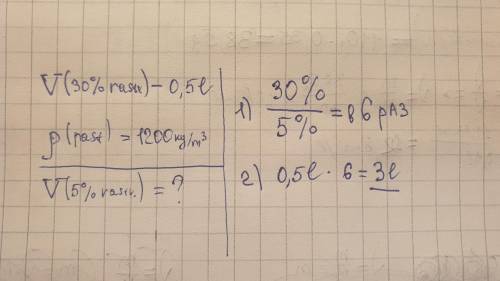 V(30% rastv) - 0,5l
ρ(rast) = 1200 kg/m³
V(5% rastv.) = ?
1) 30%/5% = в 6 рАЗ
2) 0,5l · 6 = 3l